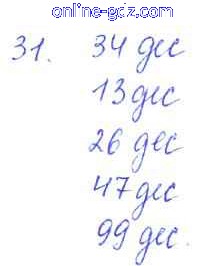 online-gdz.com
31. 34 дес
13 дес
26 дес
47 дес
99 дес.